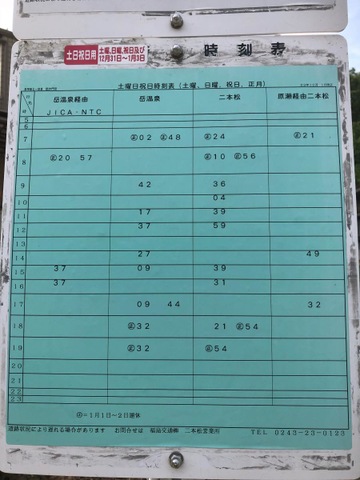 土日祝日用 土曜、日曜、祝日及び
12月31日～1月3日
時刻表
土曜日祝日時刻表（土曜、日曜、祝日、正月）
岳温泉経由 岳温泉 二本松 原瀬経由二本松
JICA-NTC
5
6
7 ㊣02 ㊣48 ㊣24 ㊣21
8 ㊣20 57 ㊣10 ㊣56
9 42 36
10 04
11 17 39
12 37 59
13
14 27 49
15 37 09 39
16 37 31
17 09 44 32
18 ㊣32 21 ㊣54
19 ㊣32 ㊣54
20
21
22
23
㊣=1月1日～2日運休
道路状況により遅れる場合があります お問合せは 福島交通㈱ 二本松営業所 TEL 0243-23-0123